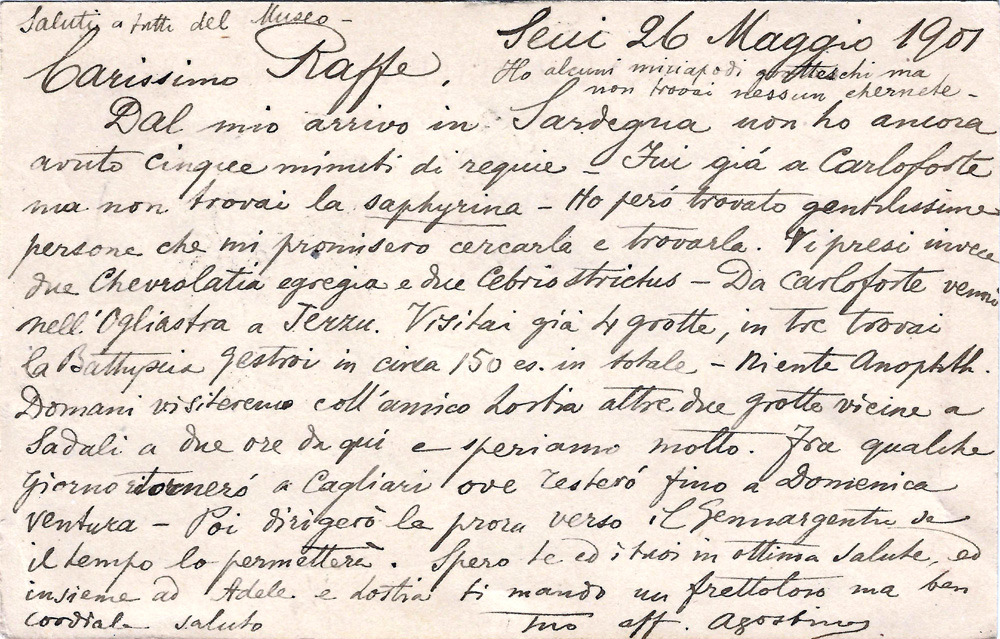 Saluti a tutti del Museo –
Seui 26 Maggio 1901
Carissimo Raffe,
Ho alcuni miriapodi grotteschi ma
non trovai nessun chernete –
Dal mio arrivo in Sardegna non ho ancora
avuto cinque minuti di requie – Fui giá a Carloforte
ma non trovai la saphyrina – Ho peró trovato gentilissime
persone che mi promisero cercarla e trovarla. Vi presi invece
due Chevrolatia egregia e due Cebrio strictus – Da Carloforte venni
nell'Ogliastra a Jerzu. Visitai giá 4 grotte, in tre trovai
la Bathyscia Gestroi in circa 150 es. in totale – Niente Anophth.
Domani visiteremo coll'amico Lostia altre due grotte vicine a
Sadali a due ore da qui e speriamo molto. Fra qualche
giorno ritorneró a Cagliari ove resteró fino a Domenica
ventura – Poi dirigerò la prora verso il Gennargentu se
il tempo lo permetterà. Spero te ed i tuoi in ottima salute, ed
insieme ad Adele e Lostia ti mando un frettoloso ma ben
cordiale saluto
tuo aff. Agostino